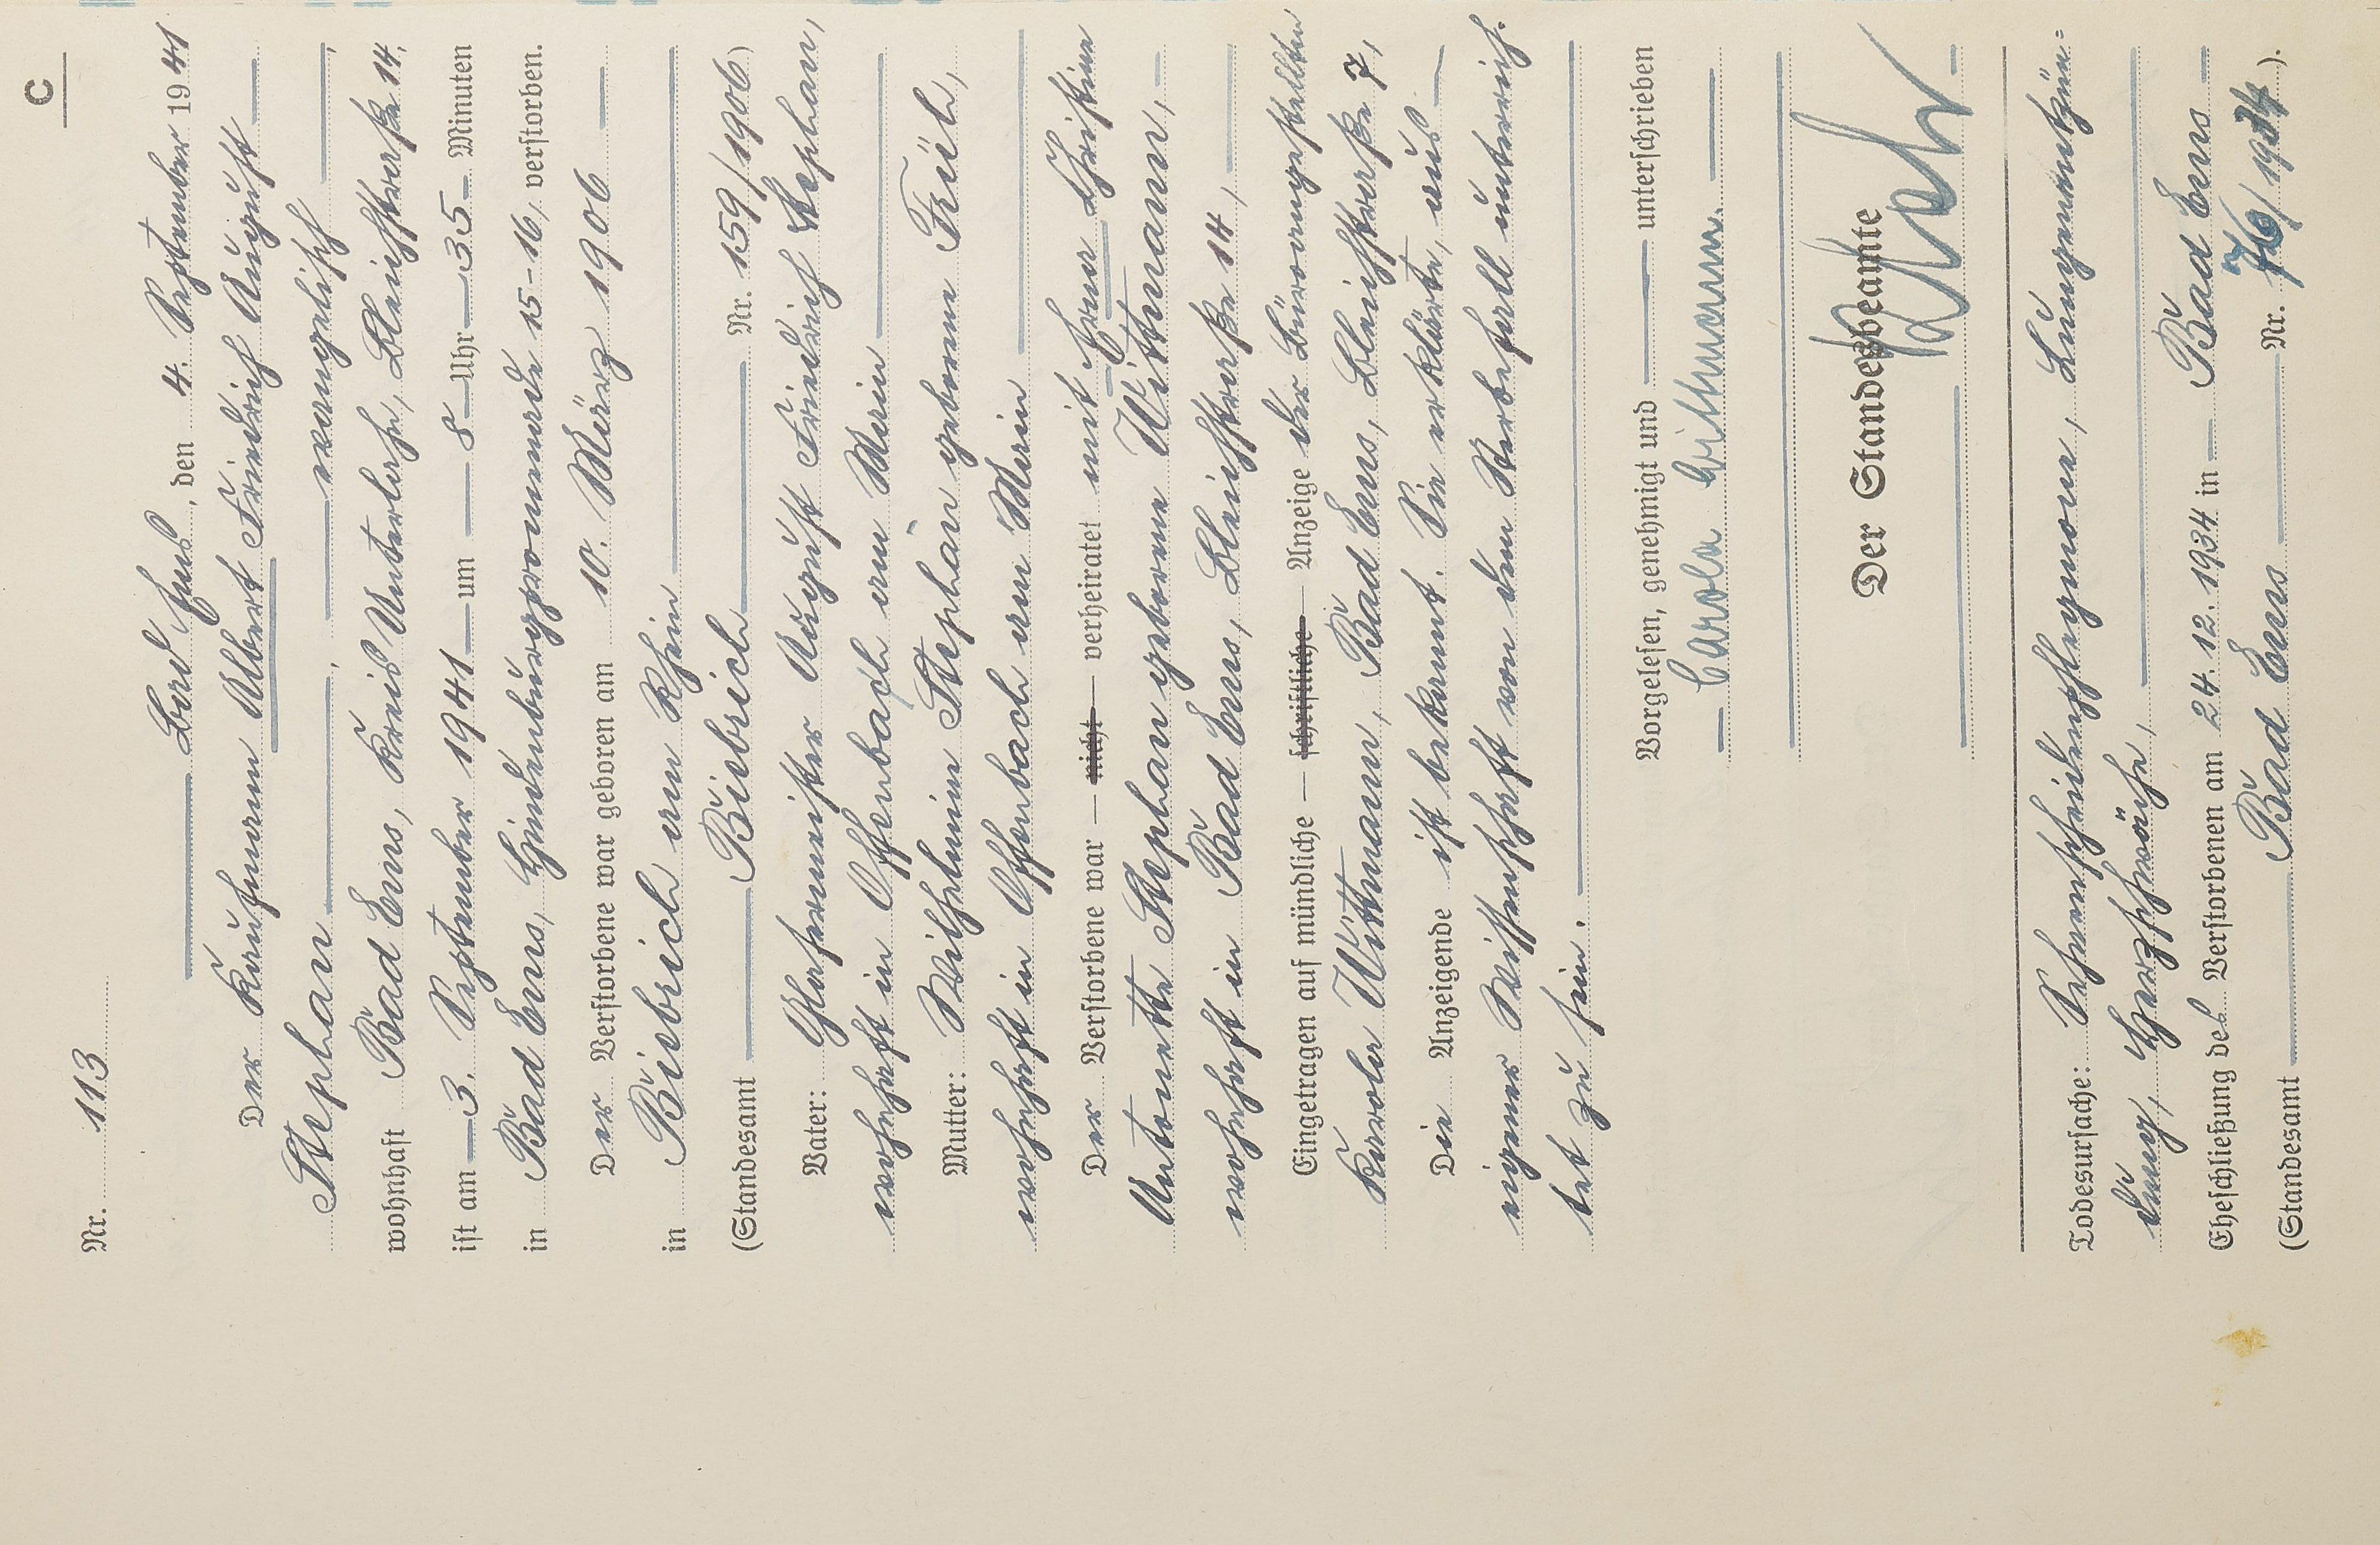 C
Nr. 113
Bad Ems, den 4. September 1941
Der Kaufmann Albert Friedrich August
Stephan, evangelisch,
wohnhaft Bad Ems, Kreis Unterlahn, Bleichstraße 14,
ist am 3. September 1941 um 8 Uhr 35 Minuten
in Bad Ems, Hindenburgpromenade 15-16, verstorben.
Der Verstorbene war geboren am 10. März 1906
in Biebrich am Rhein
(Standesamt Biebrich Nr. 159/1906)
Vater: August Friedrich Stephan,
wohnhaft in Offenbach am Main
Mutter: Wilhelmine Stephan geborene Früh,
wohnhaft in Offenbach am Main
Der Verstorbene war – nicht – verheiratet mit Christine
Antonette Stephan geborene Wittmann,
wohnhaft in Bad Ems, Bleichstraße 14,
Eingetragen auf mündliche – schriftliche – Anzeige der Büroangestellten
Karola Wittmann, Bad Ems, Bleichstraße 7,
Die Anzeigende ist bekannt. Sie erklärte, aus
eigener Wissenschaft von dem Sterbefall unterrich-
tet zu sein.
Vorgelesen, genehmigt und unterschrieben
Carola Wittmann.
Der Standesbeamte
Todesursache: Lungenentzün-
dung, Herzschwäche,
Eheschließung des Verstorbenen am 24.12.1934 in Bad Ems
(Standesamt Bad Ems Nr. 76/1934).